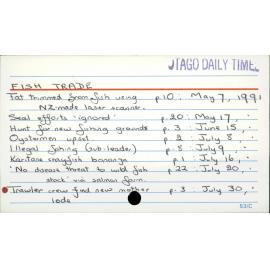 OTAGO DAILY TIMES
FISH TRADE
Fat trimmed from fish using p.10 : May 7, 1991
NZ-made laser scanner.
Seal efforts 'ignored' p.20 : May 17, "
Hunt for new fishing grounds p.3 : June 15, "
Oystermen upset p.2 : July 8, "
Illegal fishing (sub-leader) p.8 : July 9, "
Karitane crayfish bonanza p.1 : July 16, "
'No disease threat to wild fish p.22 : July 20, "
stock' via salmon farm.
Trawler crew find new mother p.3 : July 30, "
lode
53/C